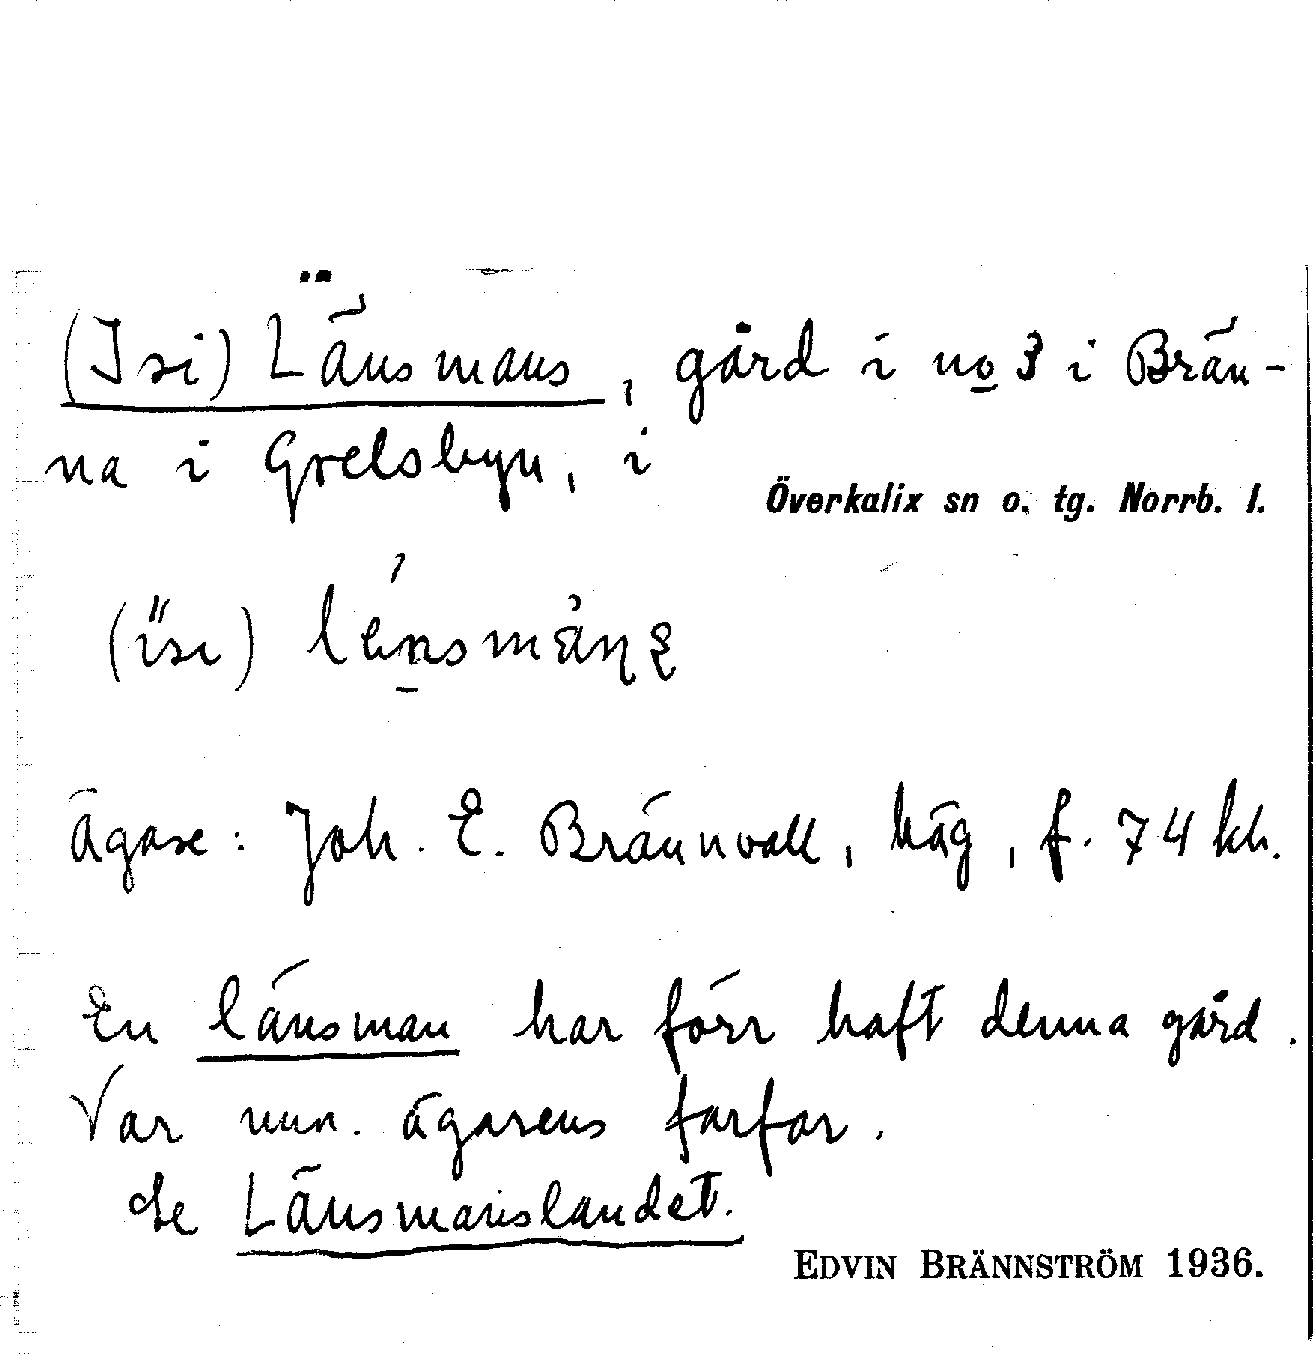 (Isi) Länsmans, gård i no 3 i Brän-
na i Grelsbyn, i
Överkalix sn o. tg. Norrb. l.
(ìsi)
Ägare: Joh. E. Brännvall, häg, f. 74 hh.
En länsman har förr haft denna gård.
Var nun. ägarens farfar.
Se Länsmanslandet.
EDVIN BRÄNNSTRÖM 1936.